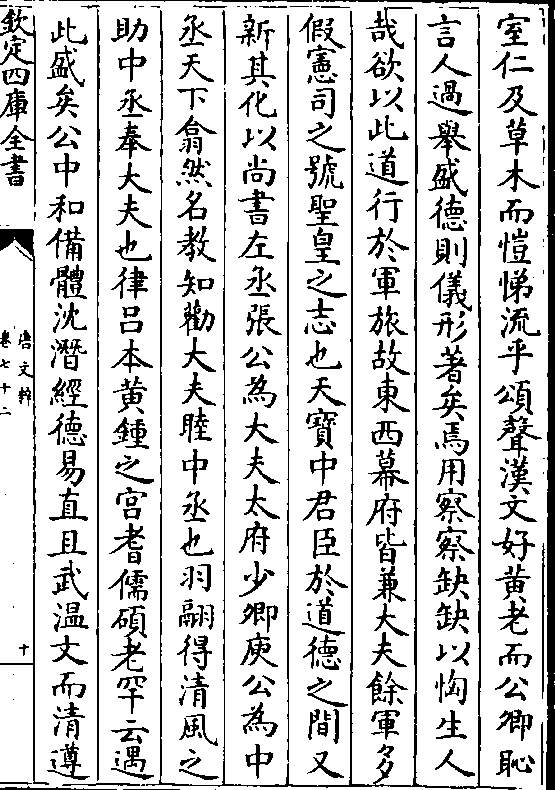 室仁及草木而愷悌流乎頌聲漢文好黄老而公卿恥
言人過舉盛德則儀形著矣焉用察察缺缺以恟生人
哉欲以此道行於軍旅故東西幕府皆兼大夫餘軍多
假憲司之號聖皇之志也天寶中君臣於道德之間又
新其化以尚書左丞張公為大夫太府少卿庾公為中
丞天下翕然名教知勸大夫睦中丞也羽翮得清風之
助中丞奉大夫也律吕本黄鍾之宫耆儒碩老罕云遇
此盛矣公中和備體沈潛經德易直且武温文而清遵
欽定四庫全書
唐文粹
卷七十二
十